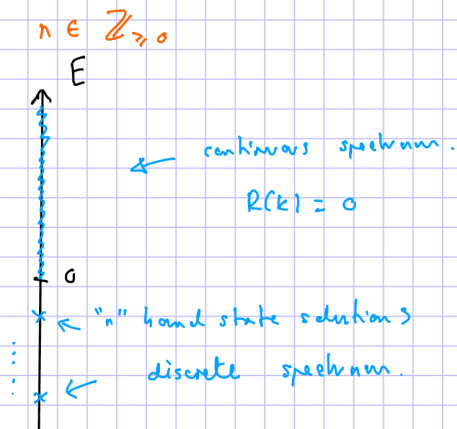 n ∈ ℤ≥0
E
continuous spectrum.
R(k) = 0
0
"n" bound state solutions
discrete spectrum.